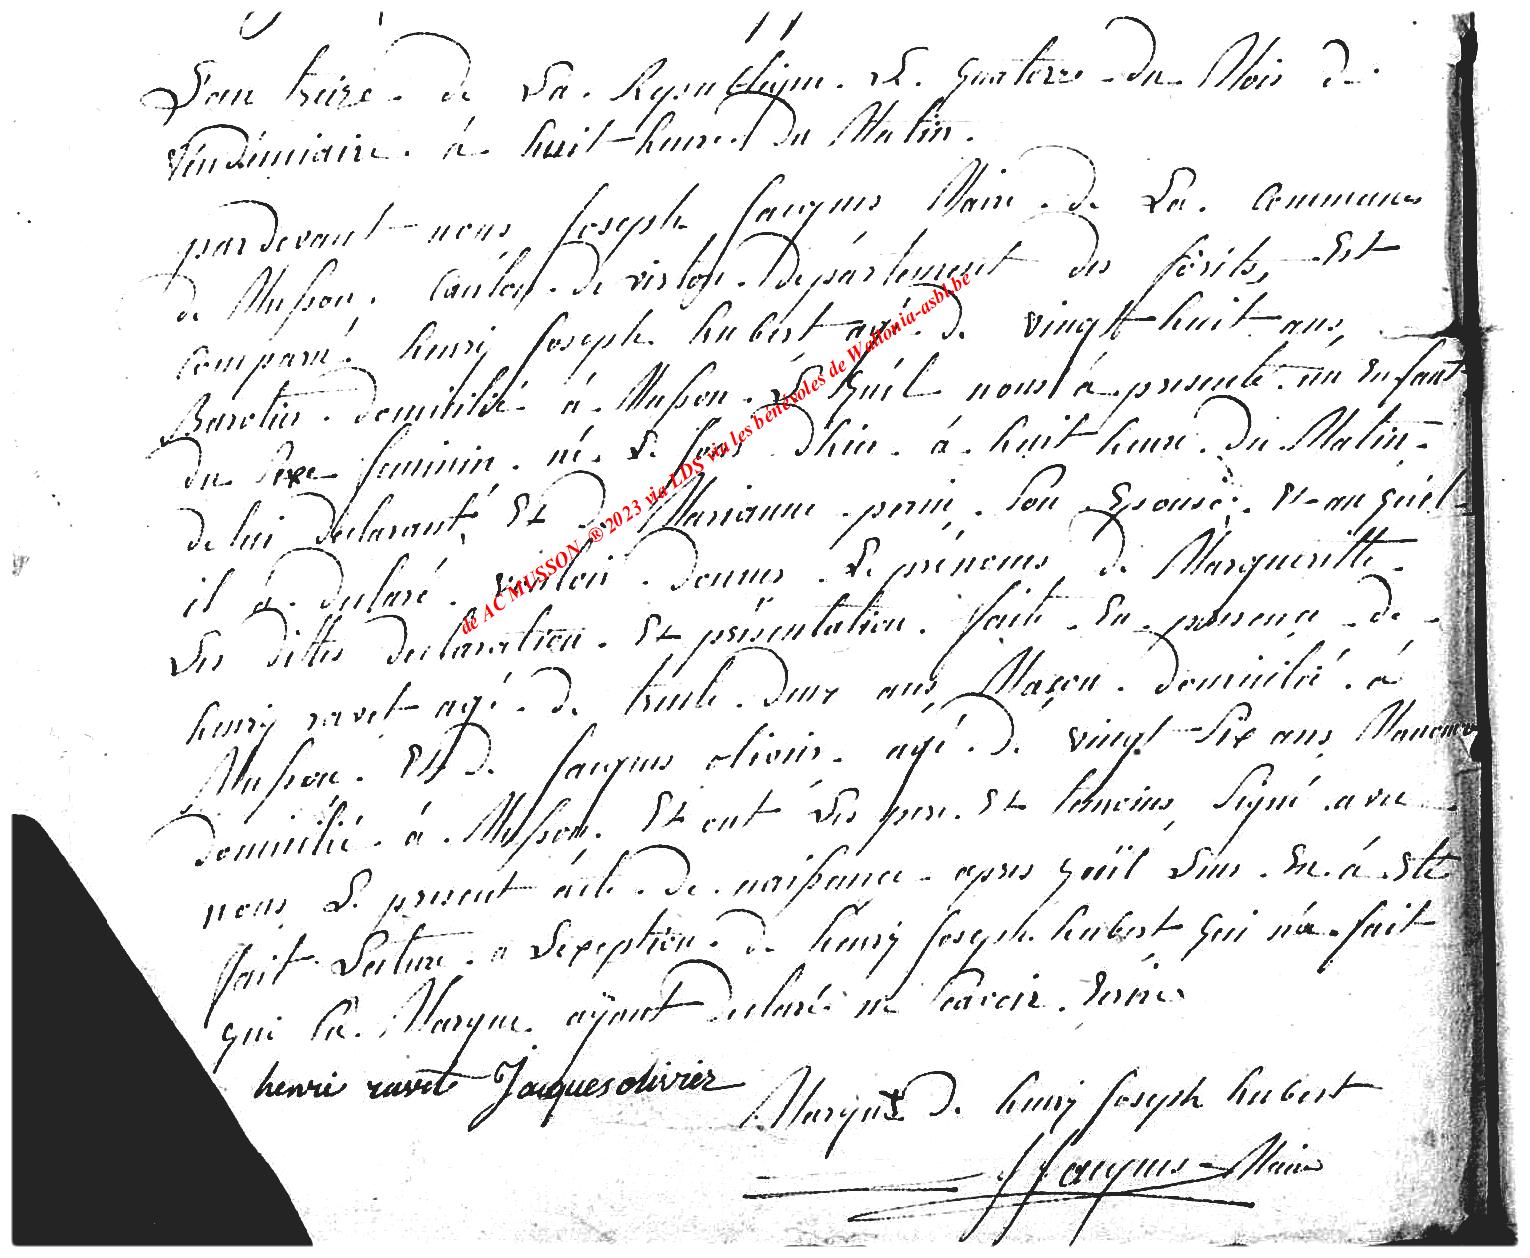 L'an treize de La Republique Le quatorze du Mois de
Vendémiaire à huit heure du Matin.
pardevant nous Joseph Jacques Maire de La Commune
de Musson. Canton de virton département des forêts, Est
Comparu henry Joseph hubert agé de vingt huit ans
domicilié à Musson. Le quél nous à presenté un Enfant
du sexe feminin né Le Jour d'hier à huit heure du Matin
de lui declarant Et de Marianne perin son Epouse Et au quél
il à declaré vouloir donner Le prénoms de Margueritte
Les dittes declaration Et présentation fait En presence de
henry ravet agé de trente deux ans Maçon domicilié à
Musson. Et de Jacques olivier agé de vingt Six ans
domicilié à Musson. Et ont Les pere Et temoins Signé avec
nous Le present acte de naissance apres quil Leur En à Eté
fait Lecture a Lexeption de henry Joseph hubert qui n'a fait
que Sa Marque ayant declaré ne Scavoir Ecrire
henri ravet Jacques olivier
Marque de henry Joseph hubert
JJacques Maire
de AC MUSSON ® 2023 via LDS via les bénévoles de Wallonia-asbl.be